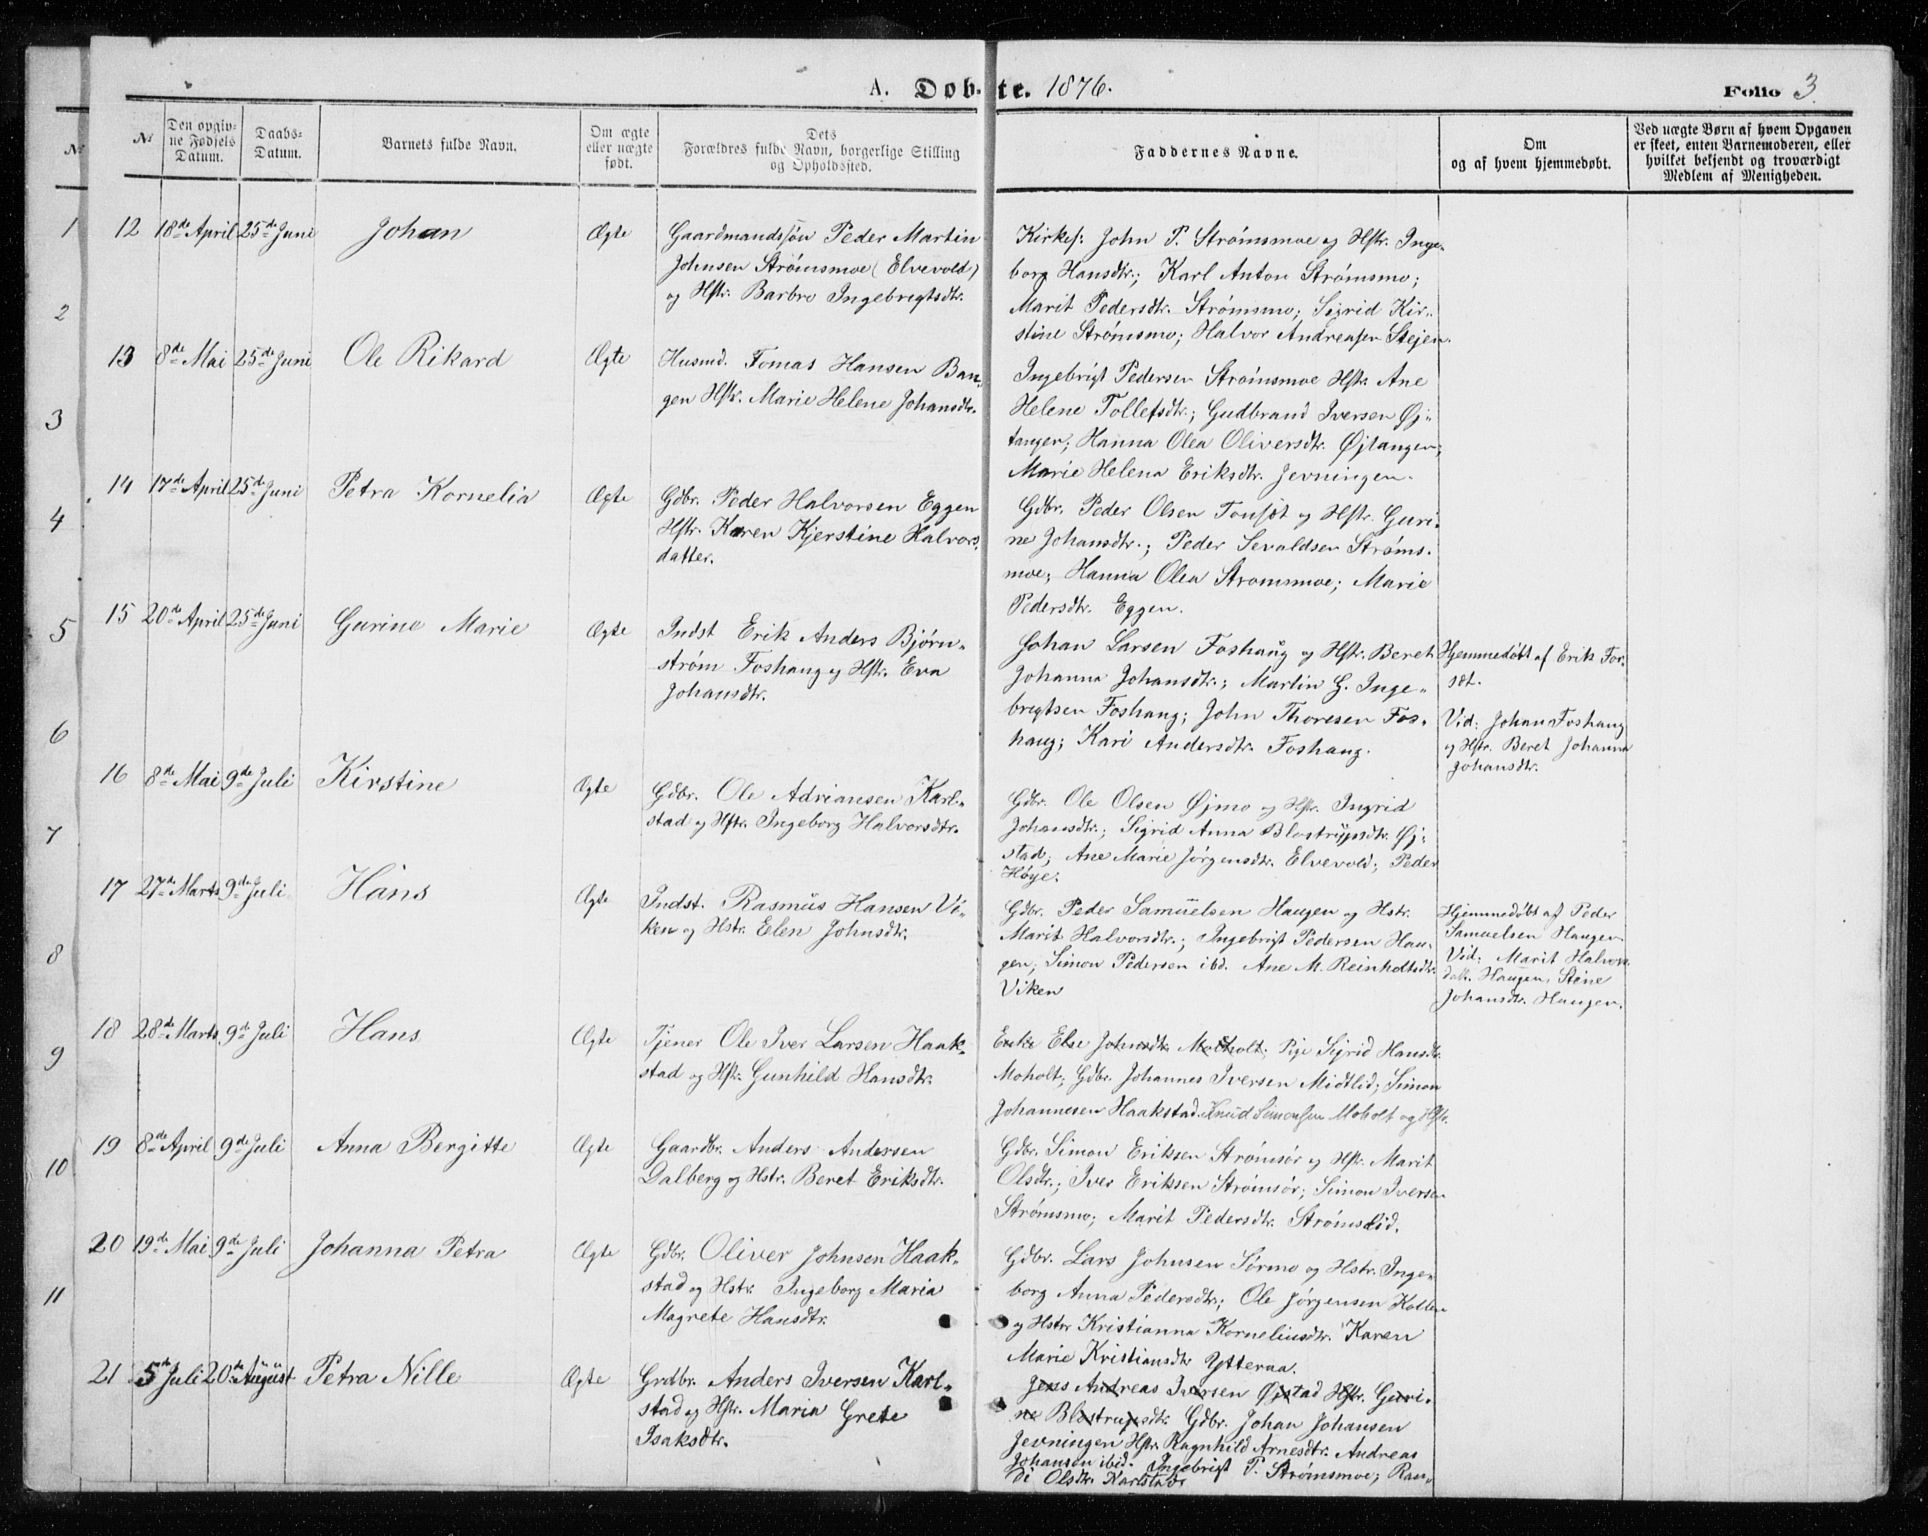 A. Døbte. 1876.
Folio 3.
№
№
Den opgiv-
ne Fødsels
Datum.
Daabs-
Datum.
Barnets fulde Navn.
Om ægte
eller uægte
født.
Dets
Forældres fulde Navn, borgerlige Stilling
og Opholdssted.
Faddernes Navne.
Om
og af hvem hjemmedøbt.
Ved uægte Børn af hvem Opgaven
er skeet, enten Barnemoderen, eller
hvilket bekjendt og troværdigt
Medlem af Menigheden.
1
2
3
4
5
6
7
8
9
10
11
12 18de April 25de Juni Johan Ægte
Gaardmandssøn Peder Martin
Johnsen Strømsmoe (Elvevold)
og Hstr. Barbro Ingebrigtsdtr.
Kirkes: John P. Strømsmoe og Hstr. Inge-
borg Hansdtr.; Karl Anton Strømsmo;
Marit Pedersdtr. Strømsmo; Sigrid Kir-
stine Strømsmo; Halvor Andreasen Stejen.
13 8de Mai 25de Juni Ole Rikard Ægte
Husmd. Tomas Hansen Ban-
gen Hstr. Marie Helene Johansdtr.
Ingebrigt Pedersen Strømsmoe Hstr. Ane
Helene Tollefsdtr.; Gudbrand Iversen Øj-
tangen; Hanna Olea Oliversdtr. Øjtangen;
Marie Helena Eriksdtr. Jevningen.
14 17de April 25de Juni Petra Kornelia Ægte
Gdbr. Peder Halvorsen Eggen
Hstr. Karen Kjerstine Halvors-
datter.
Gdbr. Peder Olsen Fousøt og Hstr. Guri-
ne Johansdtr.; Peder Sevaldsen Strøms-
moe; Hanna Olea Strømsmoe; Marie
Pedersdtr. Eggen.
15 20de April 25de Juni Gurine Marie Ægte
Indst Erik Anders Bjørn-
strøm Foshaug og Hstr. Eva
Johansdtr.
Johan Larsen Foshaug og Hstr. Beret
Johanna Johansdtr.; Martin G. Inge-
brigtsen Foshaug; John Thoresen Fos-
haug; Kari Andersdtr. Foshaug.
Hjemmedøbt af Erik For-
set.
Vid: Johan Foshaug
og Hstr. Beret Johanna
Johansdtr.
16 8de Mai 9de Juli Kirstine Ægte
Gdbr. Ole Adriansen Karl-
stad og Hstr. Ingeborg Halvorsdtr.
Gdbr. Ole Olsen Øjmo og Hstr. Ingrid
Johansdtr.; Sigrid Anna Blostrupsdtr. Øj-
stad; Ane Marie Jørgensdtr. Elvevold; Peder
Høye.
17 27de Marts 9de Juli Hans Ægte
Indst. Rasmus Hansen Vi-
ken og Hstr. Elen Johnsdtr.
Gdbr. Peder Samuelsen Haugen og Hstr.
Marit Halvorsdtr.; Ingebrigt Pedersen Hau-
gen; Simon Pedersen ibd. Ane M. Reinholtsdtr.
Viken
Hjemmedøbt af Peder
Samuelsen Haugen
Vid: Marit Halvors-
datt. Haugen, Stine
Johansdtr. Haugen.
18 28de Marts 9de Juli Hans Ægte
Tjener Ole Iver Larsen Haak-
stad og Hstr. Gunhild Hansdtr.
Enke Else Johnsdtr. Moholt; Pige Sigrid Hansdtr.
Moholt; Gdbr. Johannes Iversen Midtlid; Simon
Johannesen Haakstad. Knud Simonsen Moholt og Hstr.
19 8de April 9de Juli Anna Bergitte Ægte
Gaardbr. Anders Andersen
Dalberg og Hstr. Beret Eriksdtr.
Gdbr. Simon Eriksen Strømsør og Hstr. Marit
Olsdtr.; Iver Eriksen Strømsør; Simon Iversen
Strømsmo; Marit Pedersdtr. Strømslid.
20 19de Mai 9de Juli Johanna Petra Ægte
Gdbr. Oliver Johnsen Haak-
stad og Hstr. Ingeborg Maria
Magrete Hansdtr.
Gdbr. Lars Johnsen Sørmo og Hstr. Inge-
borg Anna Pedersdtr; Ole Jørgensen Kollen
og Hstr Kristianna Korneliusdtr. Karen
Marie Kristiansdtr Ytteraa.
21 5de Juli 20de August Petra Nille Ægte
Grdbr. Anders Iversen Karl-
stad og Hstr. Maria Grete
Isaksdtr.
Jens Andreas Iversen Øjstad Hstr. Guri-
ne Blostrupsdtr. Gdbr. Johan Johansen
Jevningen Hstr. Ragnhild Arnesdtr. Andreas
Johansen ibid. Ingebrigt P. Strømsmoe; Ran-
di Olsdtr. Karlstad.